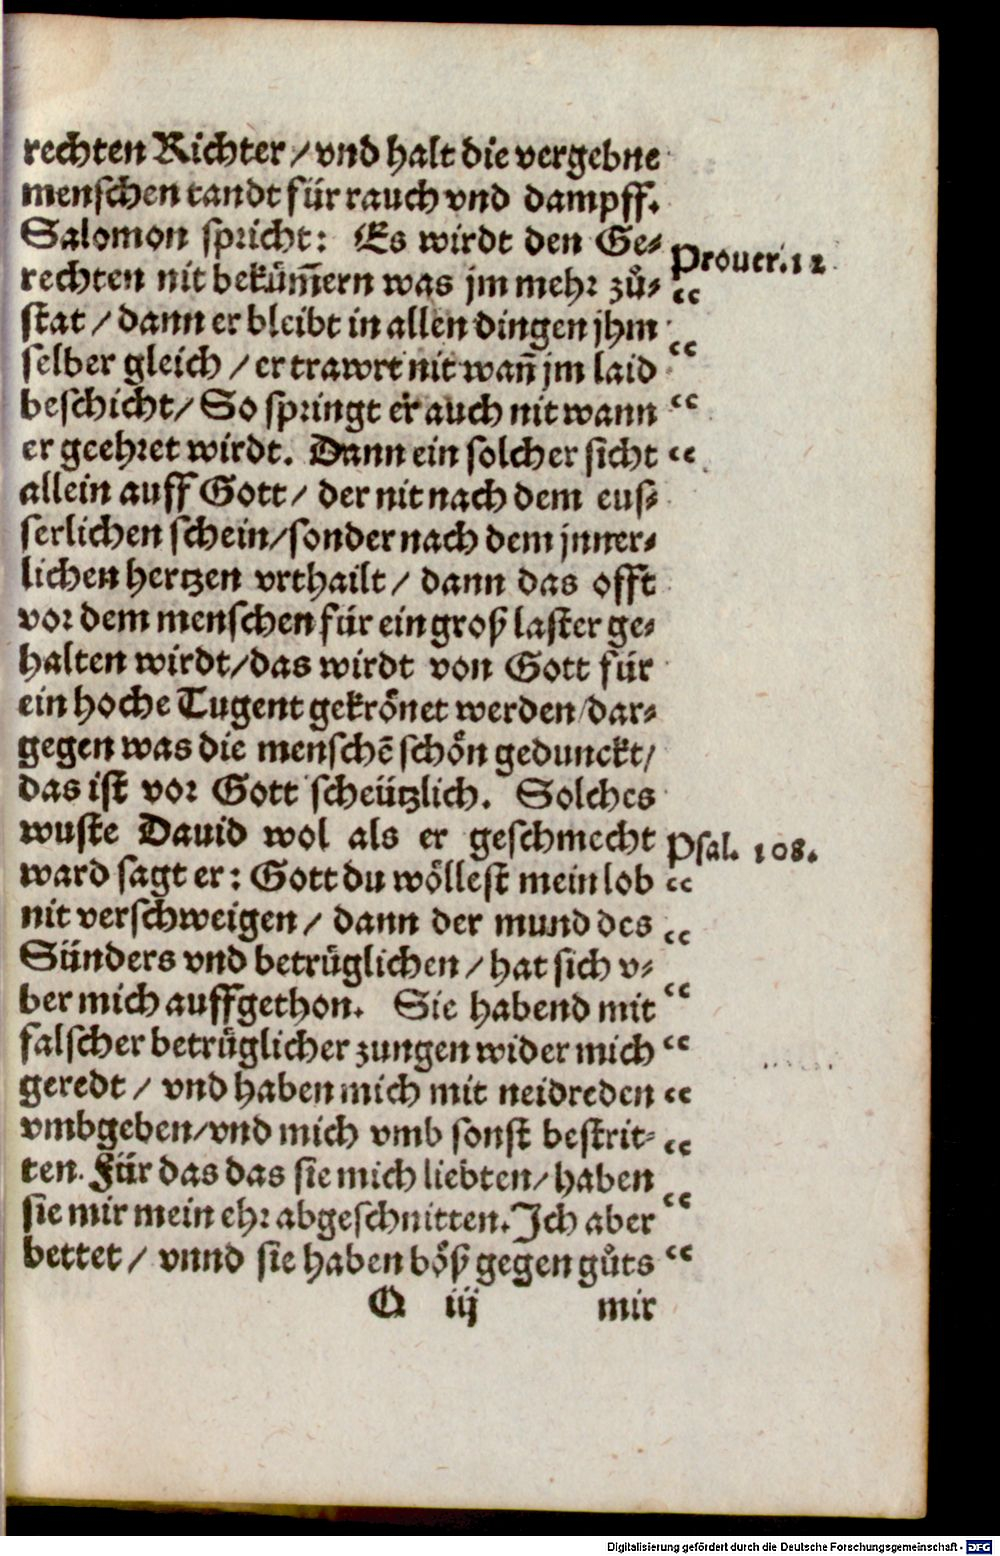 rechten Richter / vnd halt die vergebne
menschen tandt für rauch vnd dampff.
Salomon spricht: Es wirdt den Ge⸗
Prouer. 12
rechten nit bekům̄ern was jm mehr zů⸗
“
stat / dann er bleibt in allen dingen jhm
“
selber gleich / er trawrt nit wañ jm laid
beschicht / So springt er auch nit wann “
er geehret wirdt. Dann ein solcher sicht “
allein auff Gott / der nit nach dem eus⸗
serlichen schein / sonder nach dem jnner⸗
lichen hertzen vrthailt / dann das offt
vor dem menschen für ein groß laster ge⸗
halten wirdt / das wirdt von Gott für
ein hoche Tugent gekrönet werden / dar⸗
gegen was die menschē schön gedunckt /
das ist vor Gott scheützlich. Solches
wuste Dauid wol als er geschmecht
Psal. 108.
ward sagt er: Gott du wöllest mein lob “
nit verschweigen / dann der mund des “
Sünders vnd betrüglichen / hat sich v⸗
ber mich auffgethon. Sie habend mit “
falscher betrüglicher zungen wider mich “
geredt / vnd haben mich mit neidreden “
vmbgeben / vnd mich vmb sonst bestrit⸗ “
ten. Für das das sie mich liebten / haben
sie mir mein ehr abgeschnitten. Ich aber “
bettet / vnnd sie haben böß gegen gůts “
Q iij mir
Digitalisierung gefördert durch die Deutsche Forschungsgemeinschaft - DFG